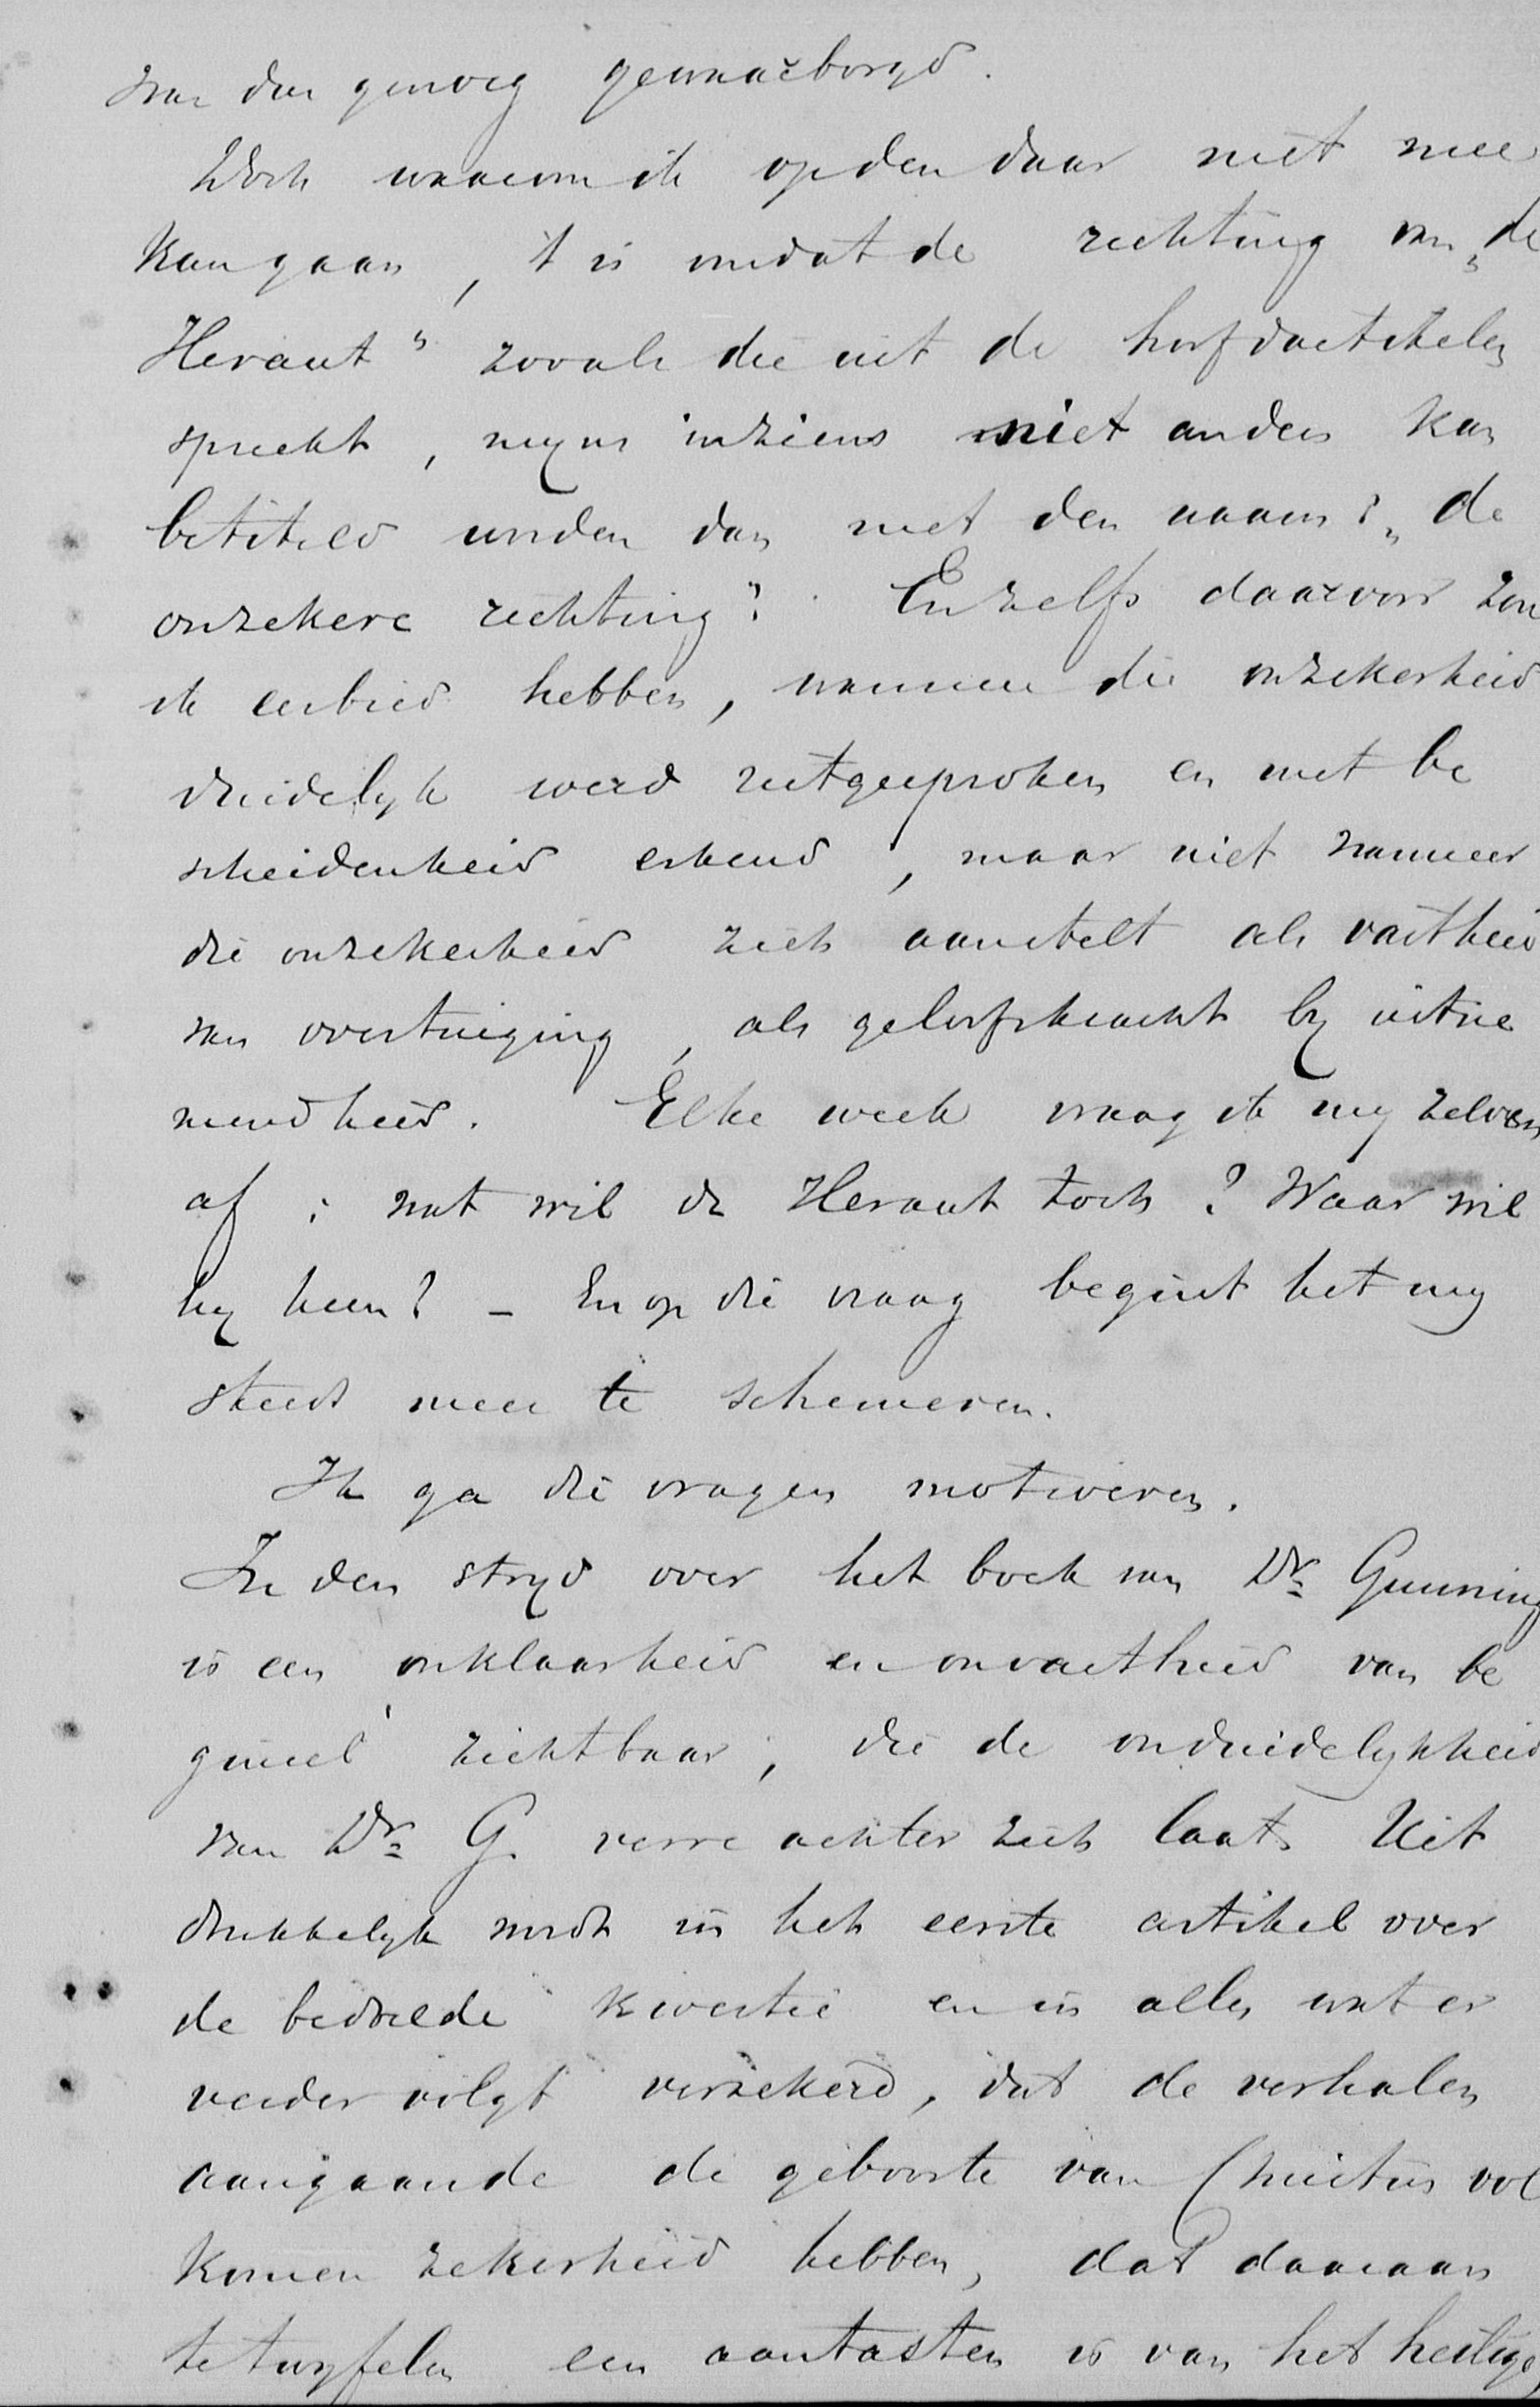 van dan genoeg gewaarborgd.
Doch waarom ik op den duur niet mee
kan gaan, 't is omdat de richting van „de
Heraut" zooals die uit de hoofdartikelen
spreekt, mijns inziens niet anders kan
betiteld worden dan met den naam: „de
onzekere richting". En zelfs daarvoor zou
ik eerbied hebben, wanneer die onzekerheid
duidelijk werd uitgesproken en met be
scheidenheid erkend, maar niet wanneer
die onzekerheid zich aanstelt als vastheid
van overtuiging, als geloofskracht bij uitne
mendheid. Elke week vraag ik mij zelven
af: wat wil de Heraut toch? Waar wil
hij heen? – En op die vraag begint het mij
steeds meer te schemeren.
Ik ga die vragen motiveren.
In den strijd over het boek van Dr. Gunning
is een onklaarheid en onvastheid van be
ginsel zichtbaar, die de onduidelijkheid
van Dr. G. verre achter zich laat. Uit
drukkelijk wordt in het eerste artikel over
de bedoelde kwestie en in alles wat er
verder volgt verzekerd, dat de verhalen
aangaande de geboorte van Christus vol
komen zekerheid hebben, dat daaraan
te twijfelen een aantasten is van het heilige,